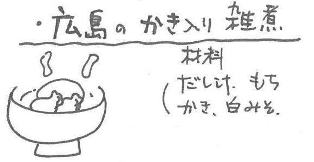 ・広島のかき入り雑煮
材料
だし汁、もち
かき、白みそ、